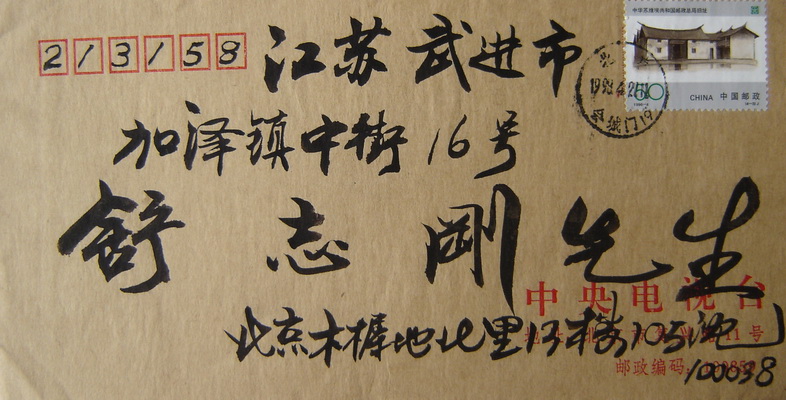 213158 江苏 武进市
加泽镇中街 16号
舒志刚先生
北京木樨地北里13楼10号
100038
中央电视台
11号
邮政编码:
中华苏维埃共和国邮政总局旧址
50
CHINA 中国邮政